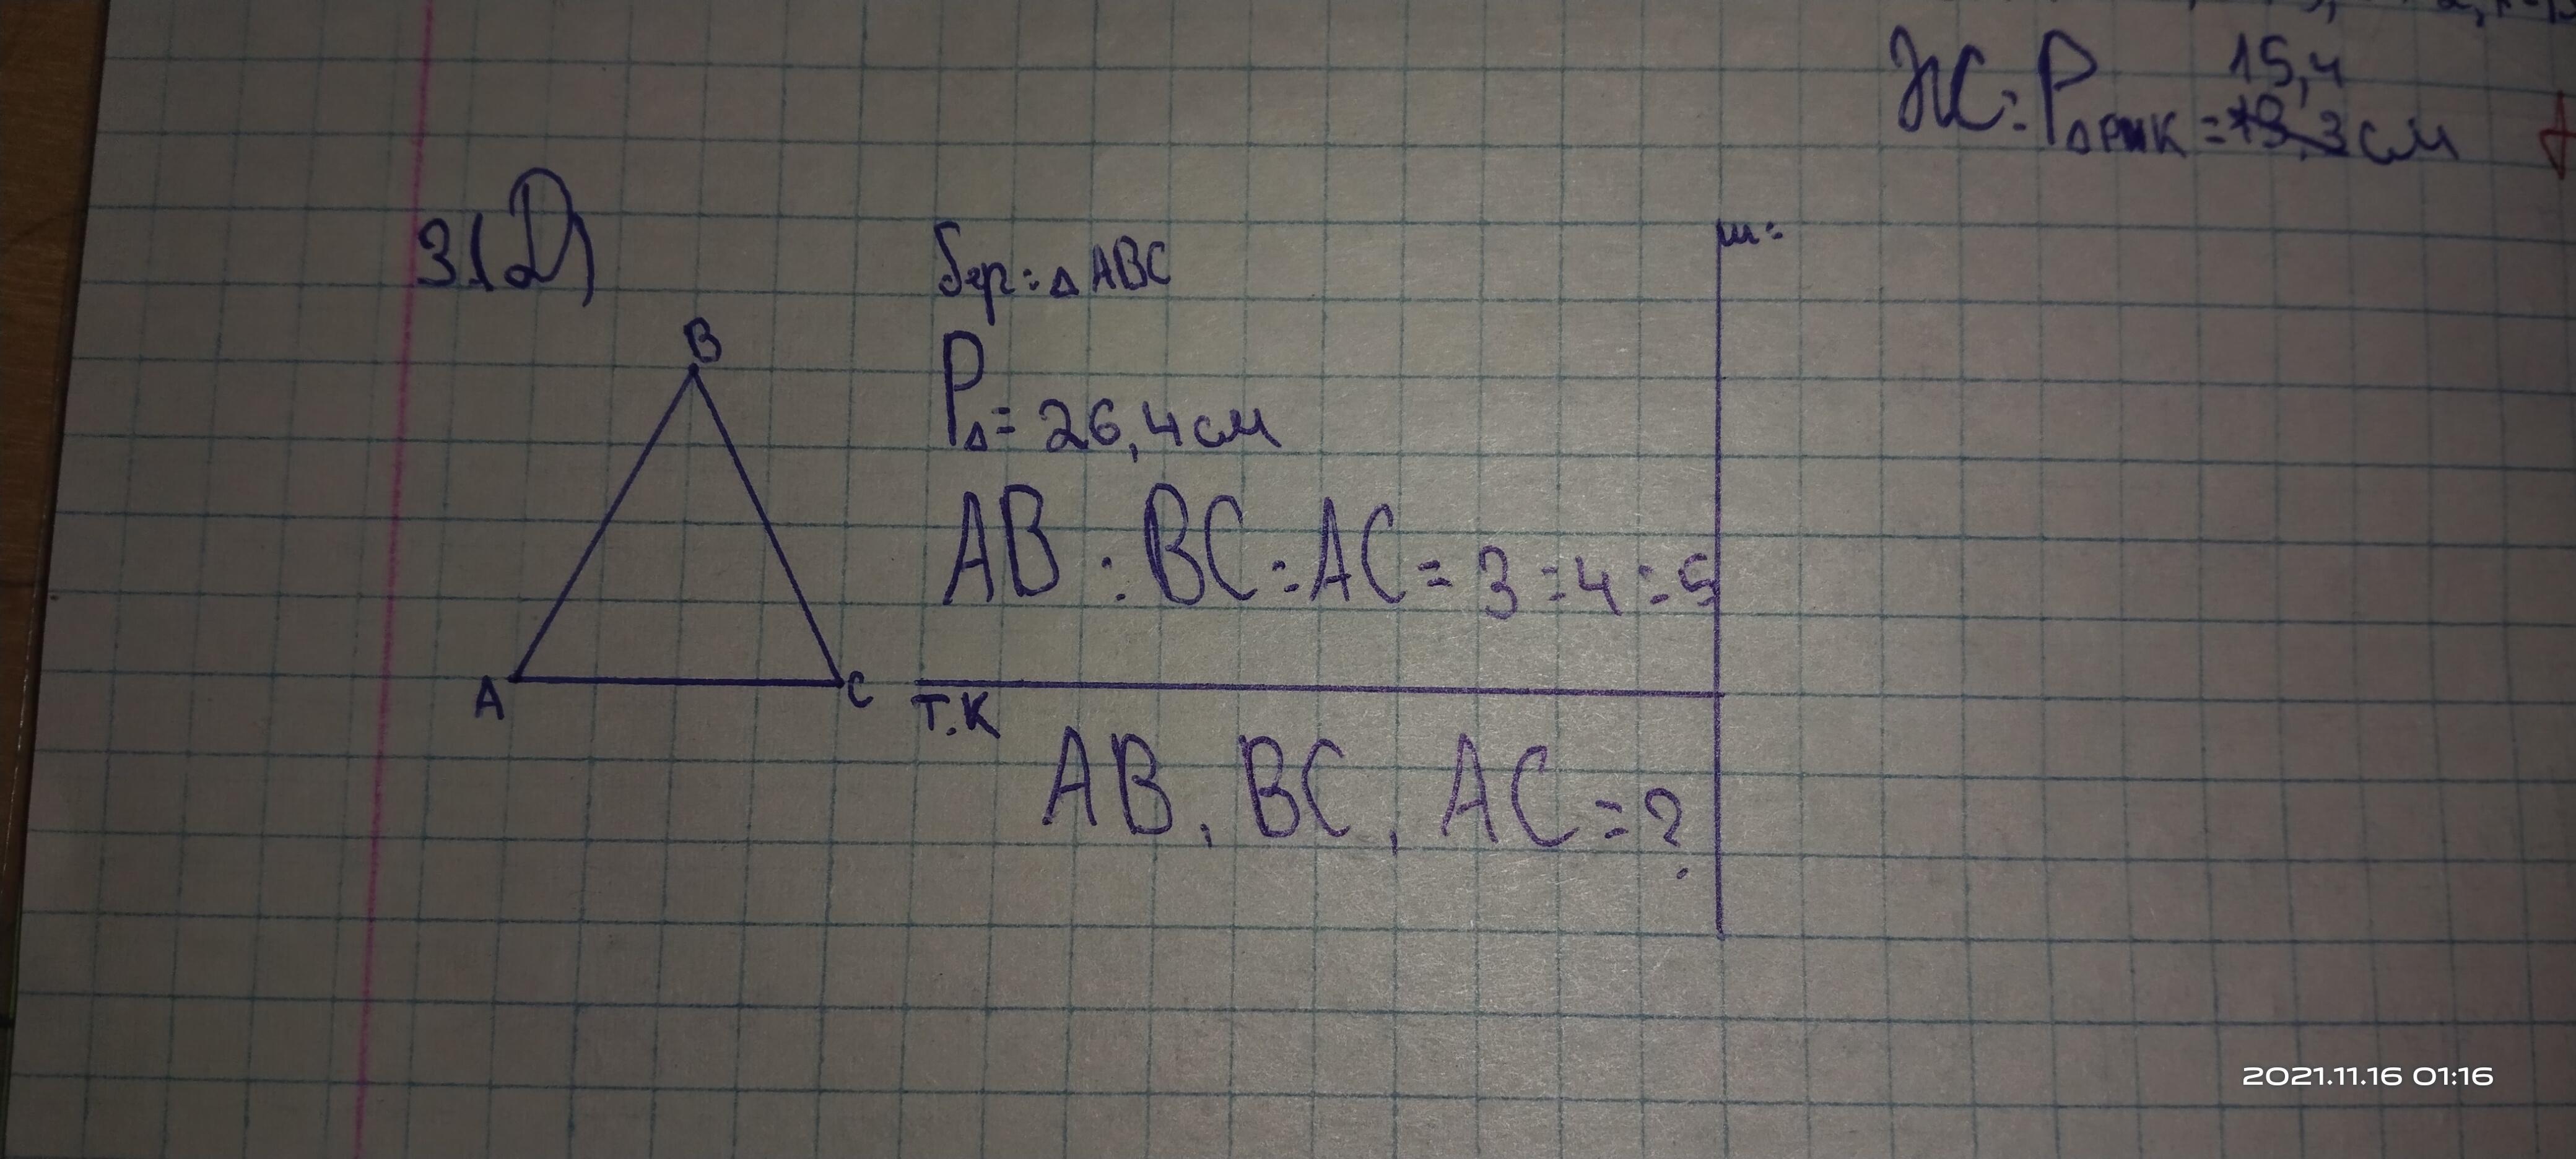 ЖС: P△РМК = 15,4 см
31(2)
бер: △ ABC
ш:
P△ = 26,4 см
AB : BC : AC = 3 : 4 : 5
B
A
C
Т.К
AB, BC, AC = ?
2021.11.16 01:16